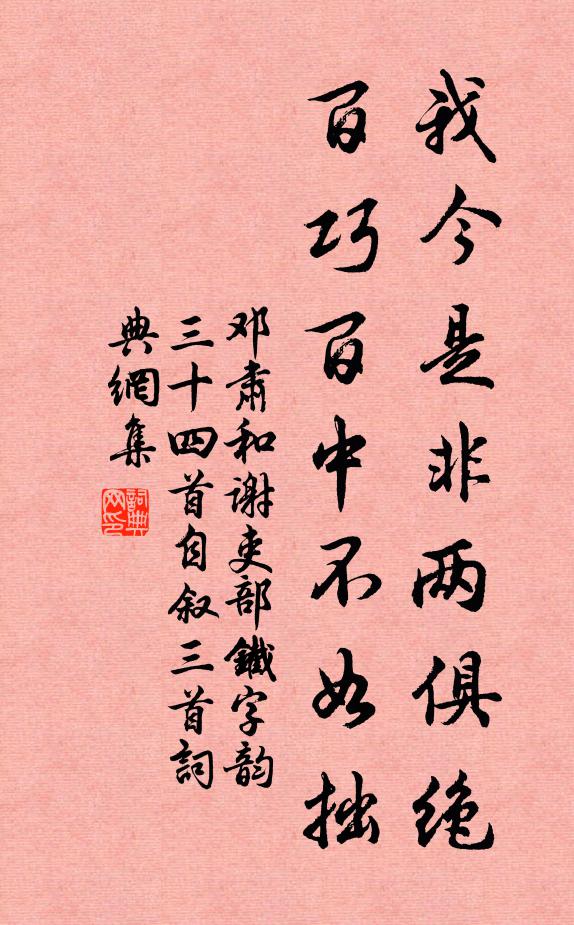 我今是非两俱绝
百巧百中不如拙
邓肃和谢吏部鐵字韵
三十四首自叙三首詞
典網集
詞典网印